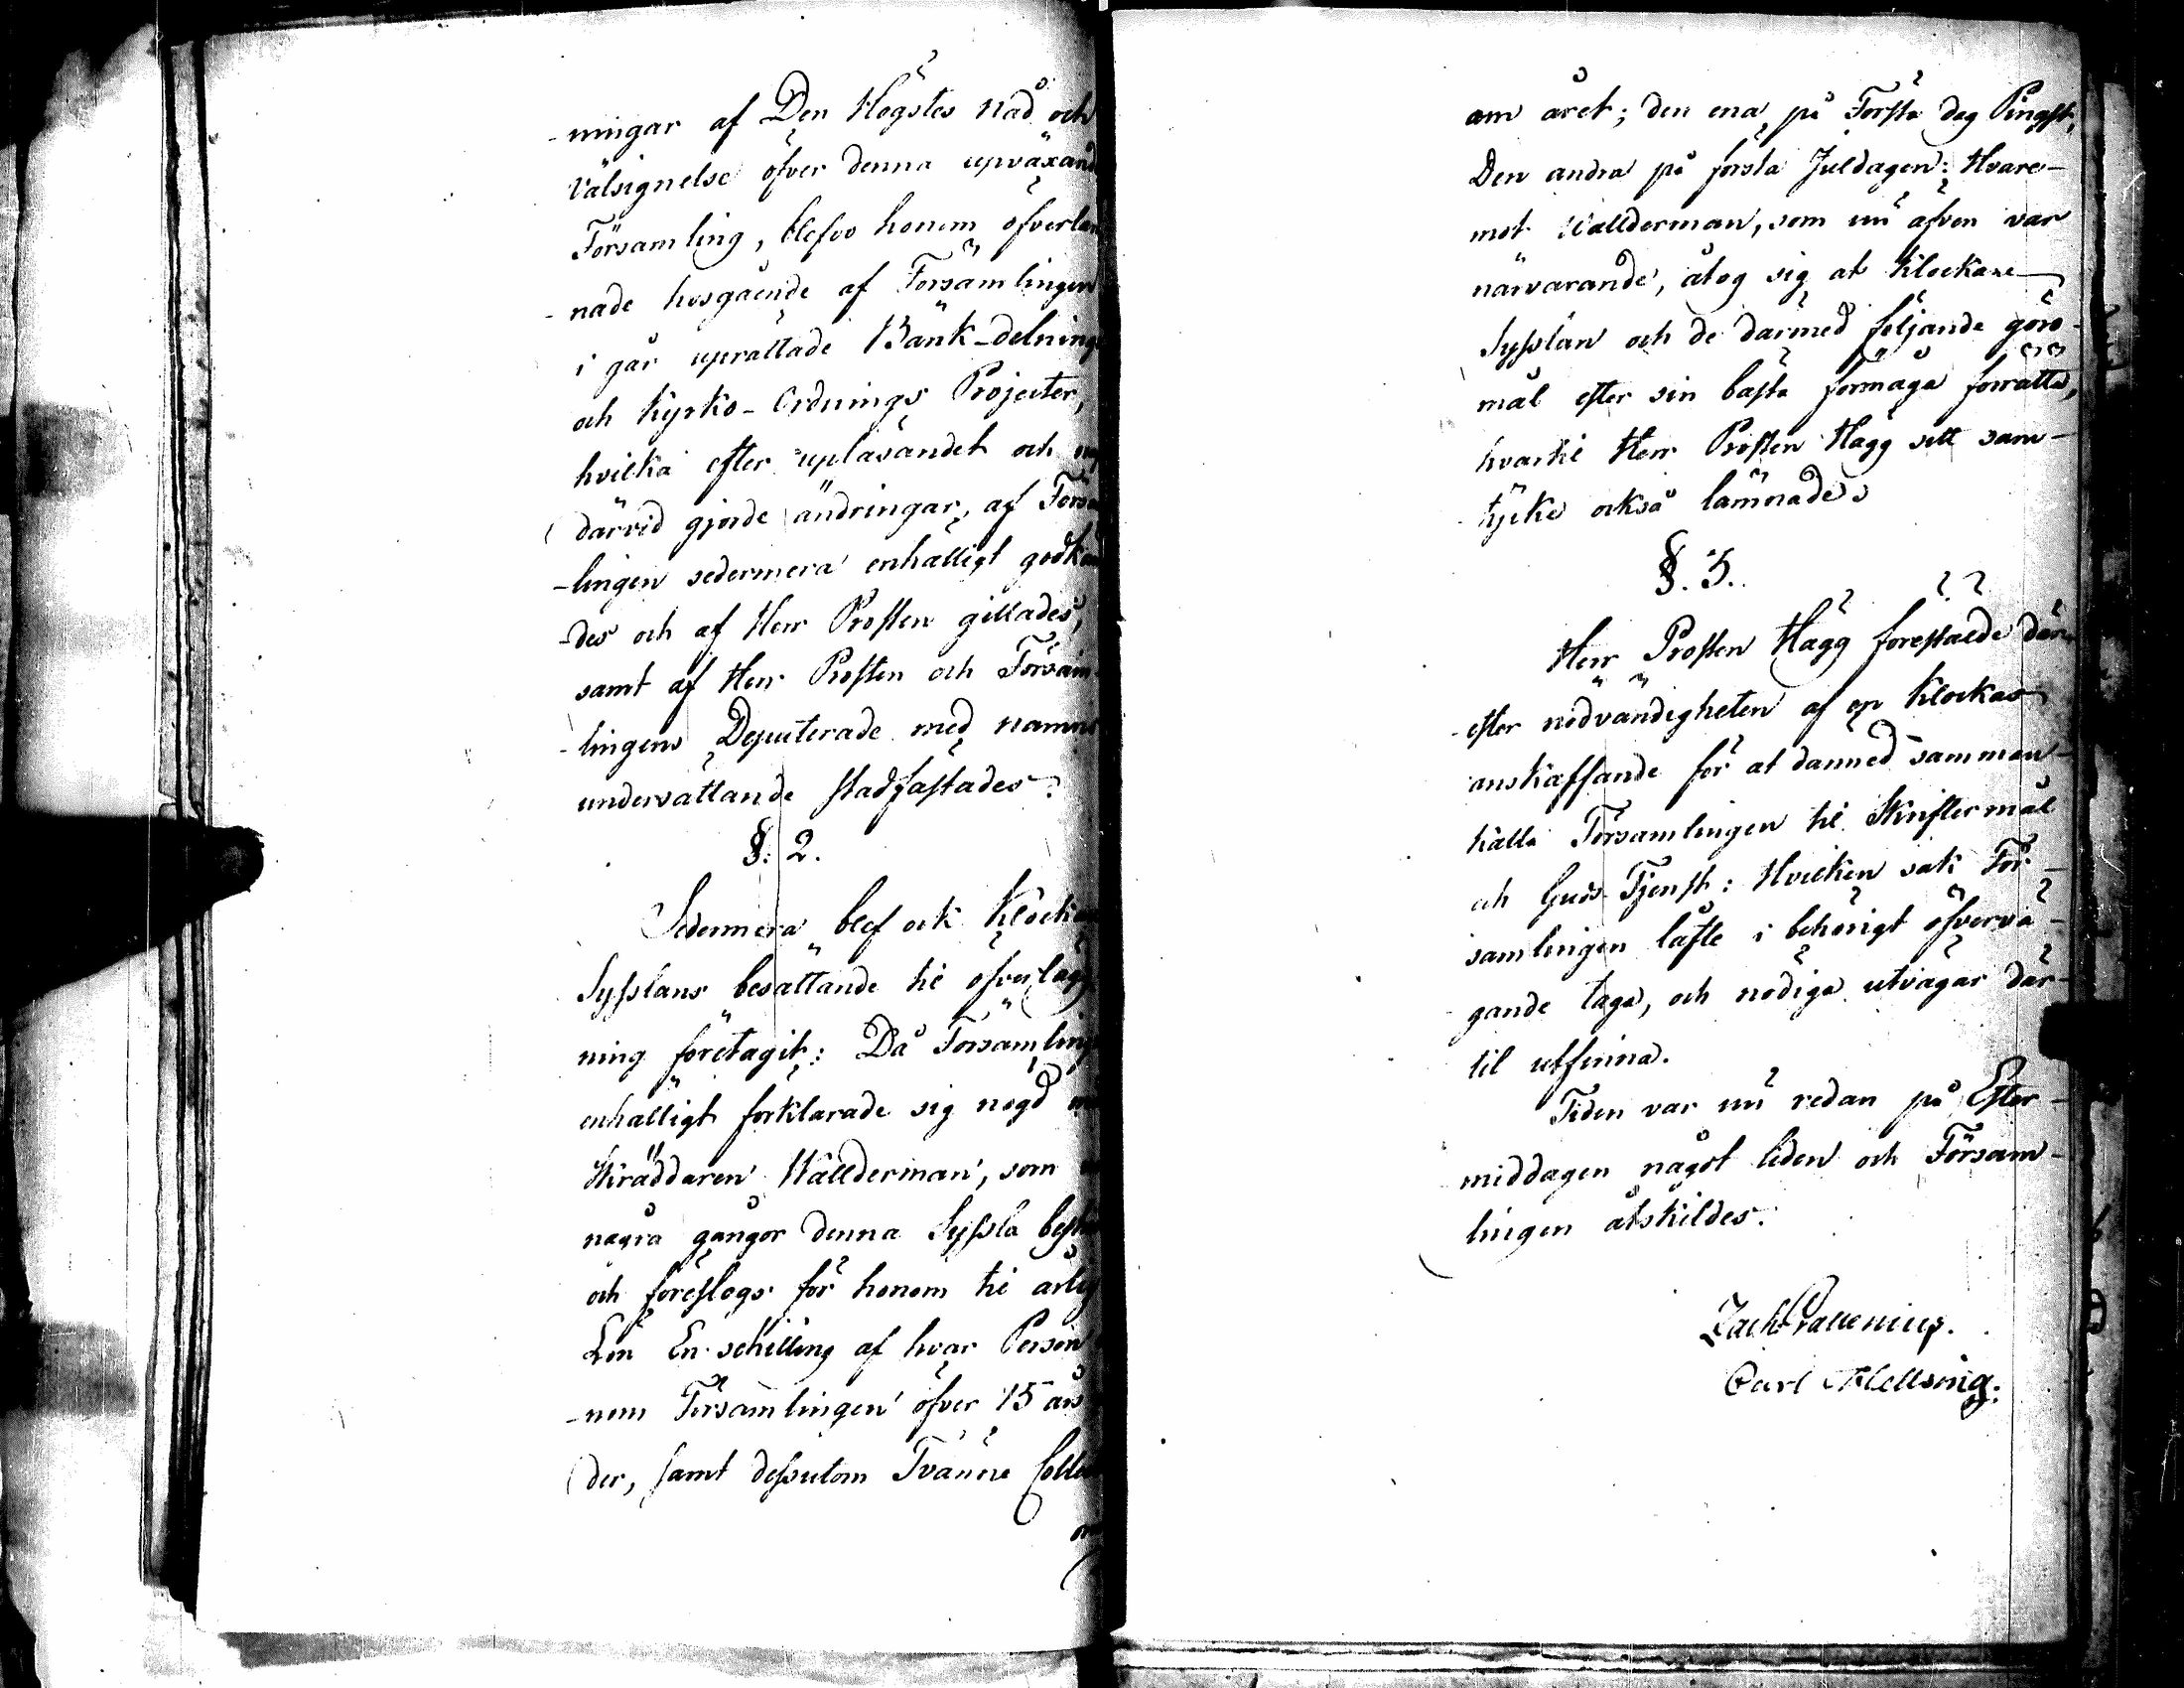 -ningar af Den Högstes nåd och
Välsignelse öfver denna upväxand
Församling, blefvo honom öfverläm
-nade hosgående af Församlingen
i går uprättade Bänk-delnings
och Kyrko-Ordnings Projecter,
hvilka efter upläsandet och
därvid gjorde ändringar, af Försa
-lingen sedermera enhälligt godkän
-des och af Herr Prosten gillades,
samt af Herr Prosten och Försam
-lingens Deputerade med namns
undersättande stadfästades.
§: 2.
Sedermera blef ock Klockar
Sysslans besättande til öfverlägg
ning företagit: Då Församling
enhälligt förklarade sig nögd
Skräddaren Wällderman, som
några gångor denna Syssla
och föreslogs för honom til årlig
Lön En schilling af hvar Person
-nom Församlingen öfver 15 års
der, samt dessutom Tvänne Colle
om
om året; den ena på Första dag Pingst,
Den andra på första Juldagen: Hvare-
mot Wällderman, som nu äfven var
närvarande, åtog sig at Klockare
Sysslan och de därmed följande göro-
mål efter sin bästa förmåga förrätta,
hvartil Herr Prosten Hägg sitt sam-
tycke också lämnade.
§. 3.
Herr Prosten Hägg förestälde där
-efter nödvändigheten af en Klockas
anskaffande för at därmed samman-
kalla Församlingen til Skriftermål
och Guds-Tjenst: Hvilken sak För-
samlingen låfte i behörigt öfvervä-
gande taga, och nödiga utvägar där-
til utfinna.
Tiden var nu redan på Efter-
middagen något liden och Försam-
lingen åtskildes.
Carl Hellsing.